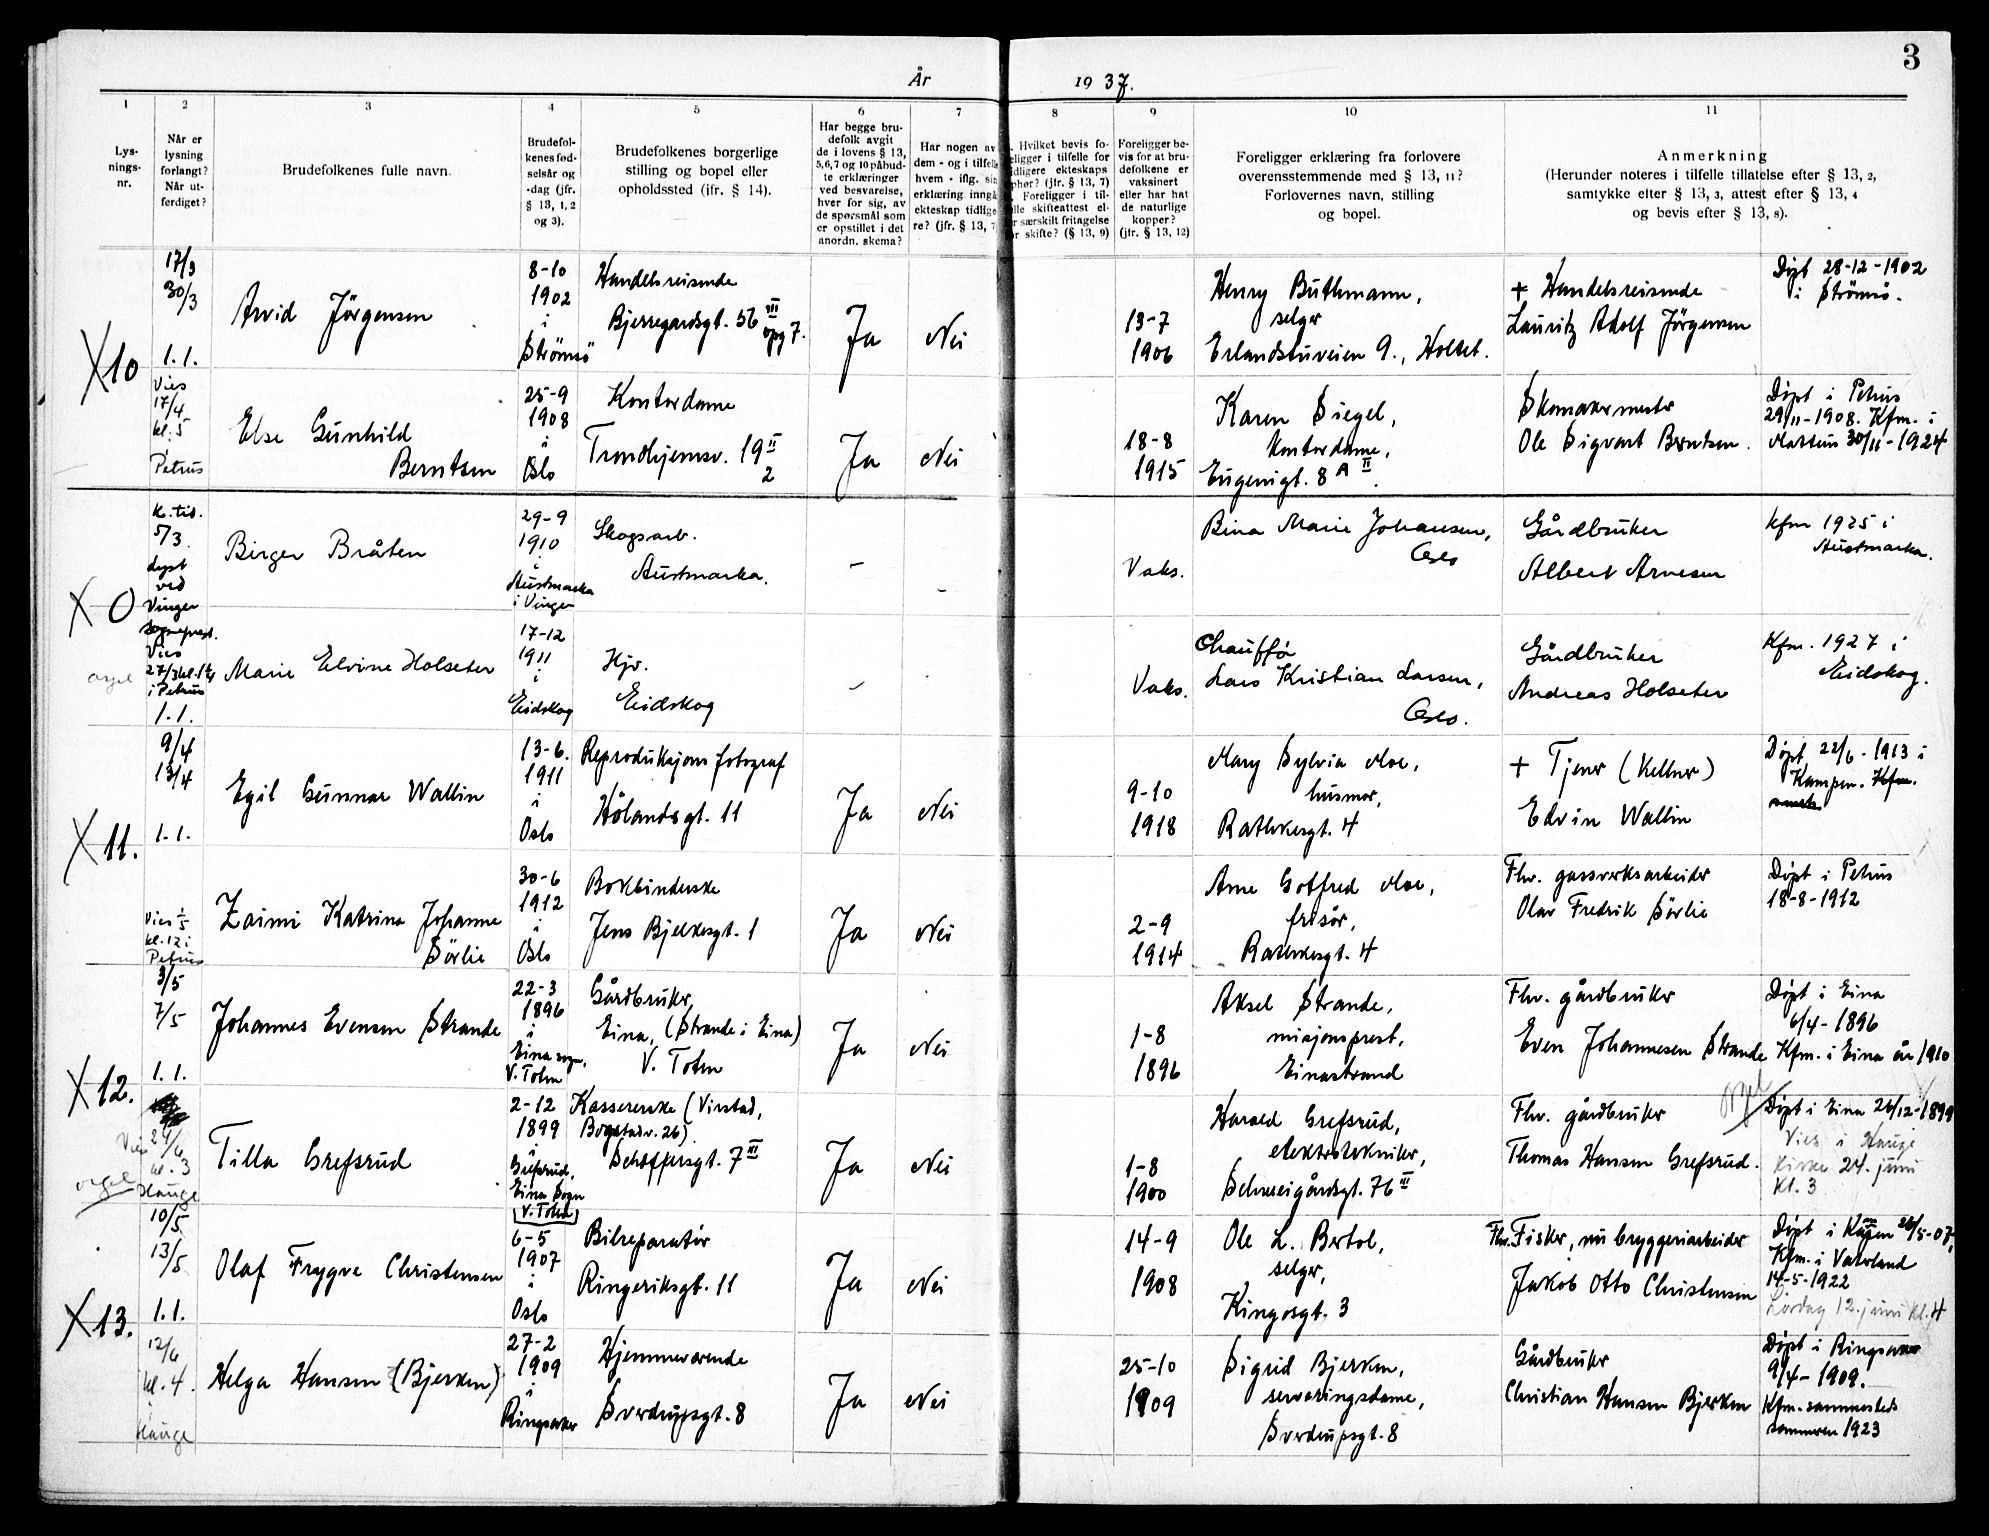 3
År 1937.
1 2 3 4 5 6 7 8 9 10 11
Lys-
nings-
nr.
Når er
lysning
forlangt?
Når ut-
ferdiget?
Brudefolkenes fulle navn.
Brudefol-
kenes fød-
selsår og
-dag (jfr.
§ 13, 1, 2
og 3).
Brudefolkenes borgerlige
stilling og bopel eller
opholdssted (jfr. § 14).
Har begge bru-
defolk avgit
de i lovens § 13,
5,6,7 og 10 påbud-
te erklæringer
ved besvarelse,
hver for sig, av
de spørsmål som
er opstillet i det
anordn. skema?
Har nogen av
dem - og i tilfelle
hvem - iflg. sin
erklæring inngå
ekteskap tidlige
re? (jfr. § 13, 7
Hvilket bevis fo-
eligger i tilfelle for
idligere ekteskaps
phør? (jfr. § 13, 7)
Foreligger i til-
lle skifteattest el-
r særskilt fritagelse
r skifte? (§ 13, 9)
Foreligger be-
vis for at bru-
defolkene er
vaksinert
eller har hat
de naturlige
kopper?
(jfr. § 13, 12)
Foreligger erklæring fra forlovere
overensstemmende med § 13, 11?
Forlovernes navn, stilling
og bopel.
Anmerkning
(Herunder noteres i tilfelle tillatelse efter § 13, 2,
samtykke efter § 13, 3, attest efter § 13, 4
og bevis efter § 13, 8).
X 10
17/3
30/3
1.1.
Arvid Jörgensen
8-10
1902
i
Strömsö
Handelsreisende
Bjerregardsgt. 56 III
opg 7.
Ja
Nei
13-7
1906
Henry Buthmann,
selger
Erlandstuveien 9., Holset.
+ Handelsreisende
Lauritz Adolf Jörgensen
Døpt 28-12-1902
i Strömsö.
Vies
17/4
kl. 5
Petrus
Else Gunhild
Berntsen
25-9
1908
i
Oslo
Kontordame
Trondhjemsv. 19 II
2
Ja
Nei
18-8
1915
Karen Siegel,
kontordame,
Eugenigt. 8 A II.
Skomakermester
Ole Sigvart Berntsen.
Døpt i Petrus
29/11-1908. Kfm. i
Matteus 30/11-1924
X 0
K. tid.
5/3.
Lyst
ved
Vinger
Vies
i Petrus
1.1.
Birger Bråten
29-9
1910
i
Austmarka
i Vinger
Skogsarb.
Austmarka.
-
-
Vaks.
Bina Marie Johansen,
Oslo
Gårdbruker
Albert Arnesen
Kfm 1925 i
Austmarka.
orgel
Marie Elvine Holseter
17-12
1911
i
Eidskog
Hjv.
Eidskog
-
Vaks.
Chauffør
Lars Kristian Larsen,
Oslo.
Gårdbruker
Andreas Holseter
Kfm. 1927 i
Eidskog.
X 11.
9/4
13/4
1.1.
Egil Gunnar Wallin
13-6.
1911
i
Oslo
Reproduksjonsfotograf
Hölandsgt. 11
Ja
Nei
9-10
1918
Mary Sylvia Moe,
husmor,
Rathkesgt. 4
+ Tjener (Kellner)
Edvin Wallin
Døpt 22/6-1913 i
Kampen. Kfm.
Vies 1/5
kl. 12 i
Petrus
Zaimi Katrina Johanne
Sörlie
30-6
1912
i
Oslo
Bokbinderske
Jens Bjelkesgt. 1
Ja
Nei
2-9
1914
Arne Gotfred Moe,
frisör,
Rathkesgt. 4
Fhv. gassverksarbeider
Olav Fredrik Sörlie
Døpt i Petrus
18-8-1912
X 12.
3/5
7/5
1.1.
Johannes Evensen Strande
22-3
1896
i
Eina sogn,
V. Toten
Gårdbruker,
Eina, (Strande i Eina)
V. Toten
Ja
Nei
1-8
1896
Aksel Strande,
misjonsprest,
Einastrand
Fhv. gårdbruker
Even Johannesen Strande
Døpt i Eina
6/4-1896
Kfm. i Eina år 1910
Vies
24/6
kl. 3
Hauge
orgel
Tilla Grefsrud
2-12
1899
i
Grefsrud,
Eina Sogn
V. Toten
Kassererske (Virstad,
Bogstadv. 26)
Schøffersgt. 7 III
Ja
Nei
1-8
1900
Harald Grefsrud,
elektrotekniker,
Schweigårdsgt. 76 III
Fhv. gårdbruker
Thomas Hansen Grefsrud.
orgel
Døpt i Eina 26/12-1899
Vies i Hauge
Kirke 24. juni
Kl. 3
X 13.
10/5
13/5
1.1.
Olaf Trygve Christensen
6-5
1907
i
Oslo
Bilreparatør
Ringeriksgt. 11
Ja
Nei
14-9
1908
Ole L. Bertol,
selger,
Kingosgt. 3
Fhv. Fisker, nu bryggeriarbeider
Jakob Otto Christensen
Døpt i Kampen 26/5-07,
Kfm. i Vaterland
14-5-1922
Lördag 12. juni kl. 4
12/6
kl. 4.
i
Hauge
Helga Hansen (Bjerken)
27-2
1909
i
Ringsaker
Hjemmeværende
Sverdrupsgt. 8
Ja
Nei
25-10
1909
Sigrid Bjerken,
serveringsdame,
Sverdrupsgt. 8
Gårdbruker
Christian Hansen Bjerken
Døpt i Ringsaker
9/4-1909.
Kfm. sammesteds
sommeren 1923